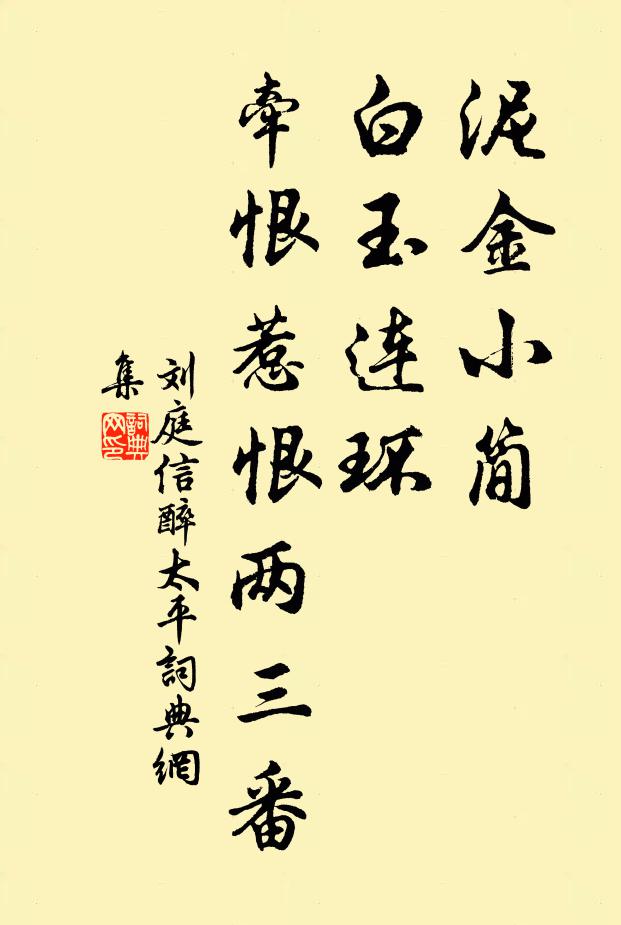 泥金小简
白玉连环
牵恨惹恨两三番
刘庭信醉太平詞典網
集
詞典网印